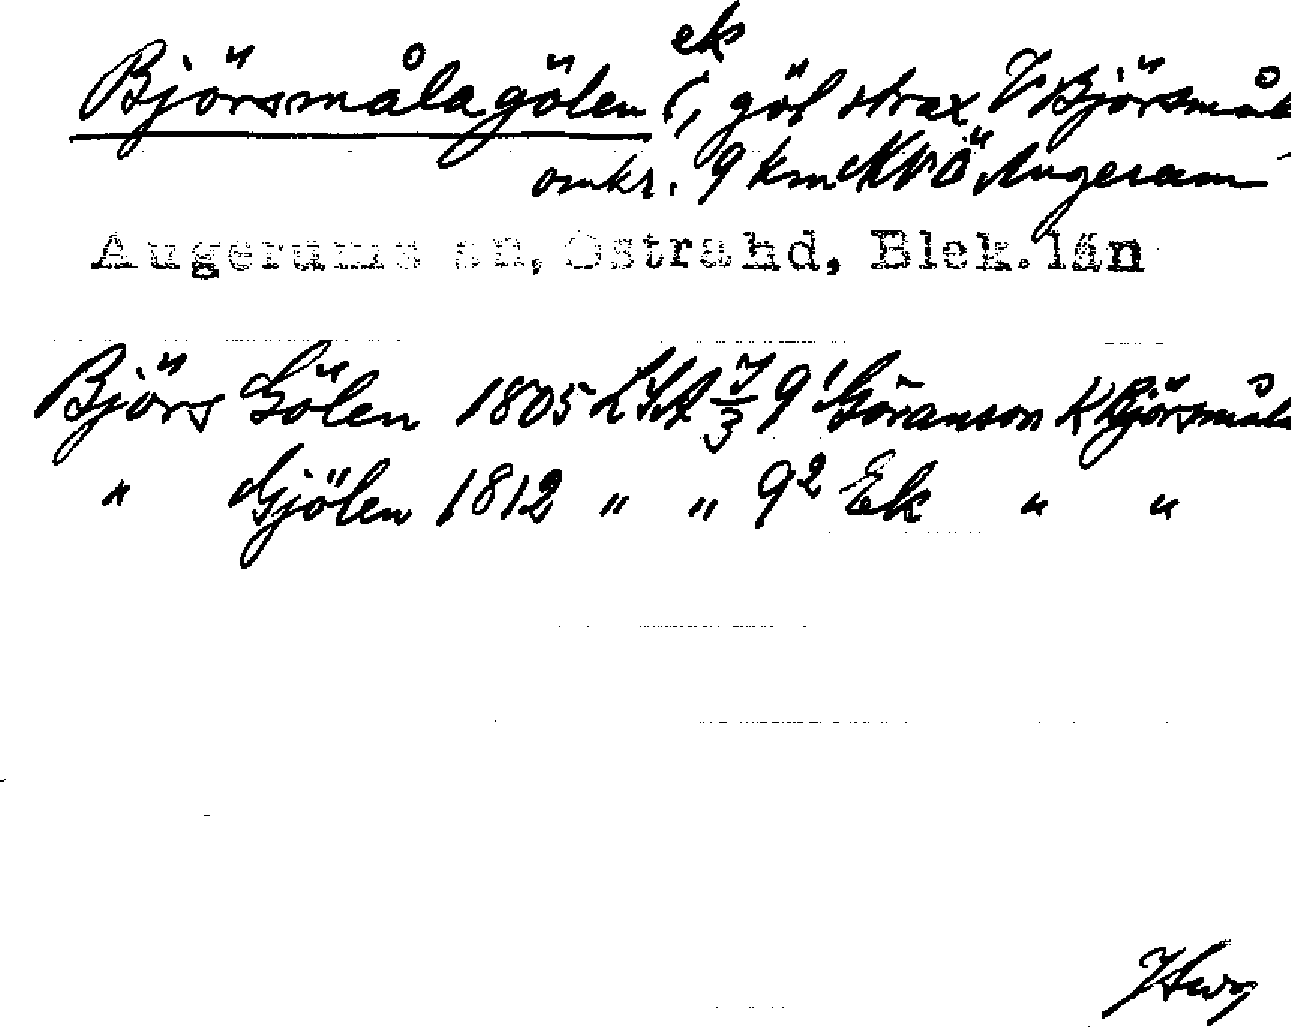 ek
Björsmålagölen (, göl strax V Björsmål
omkr. 9 km NNÖ Augerum
Augerums sn, Östra hd, Blek. län
Björs Gölen 1805 LSA 7/3 9¹ Göranson K Björsmåla
" Gjölen 1812 " " 9² Ek " "